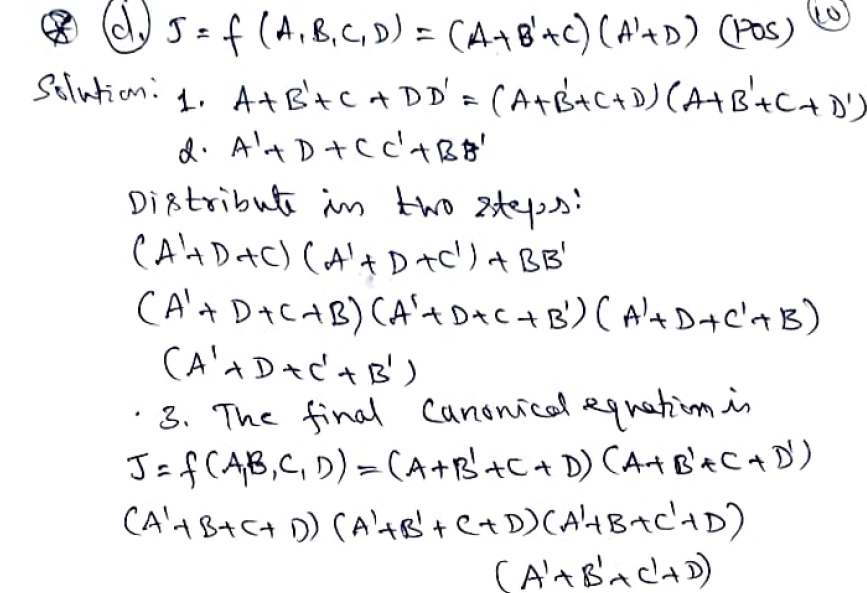 d. J = f (A, B, C, D) = (A+B'+C) (A'+D) (POS) 10
Solution: 1. A+B'+C + DD' = (A+B'+C+D) (A+B'+C+D')
2. A'+D+CC'+BB'
Distribute in two steps:
(A'+D+C) (A'+D+C') + BB'
(A'+D+C+B) (A'+D+C+B') (A'+D+C'+B)
(A'+D+C'+B')
3. The final Canonical equation is
J = f (A,B,C,D) = (A+B'+C+D) (A+B'+C+D')
(A'+B+C+D) (A'+B'+C+D) (A'+B+C'+D)
(A'+B'+C'+D)